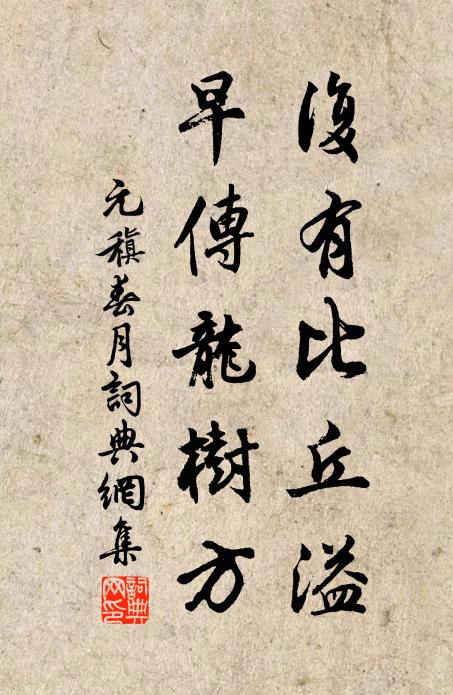 復有比丘溢
早傳龍樹方
元稹春月詞典網集
詞典網印